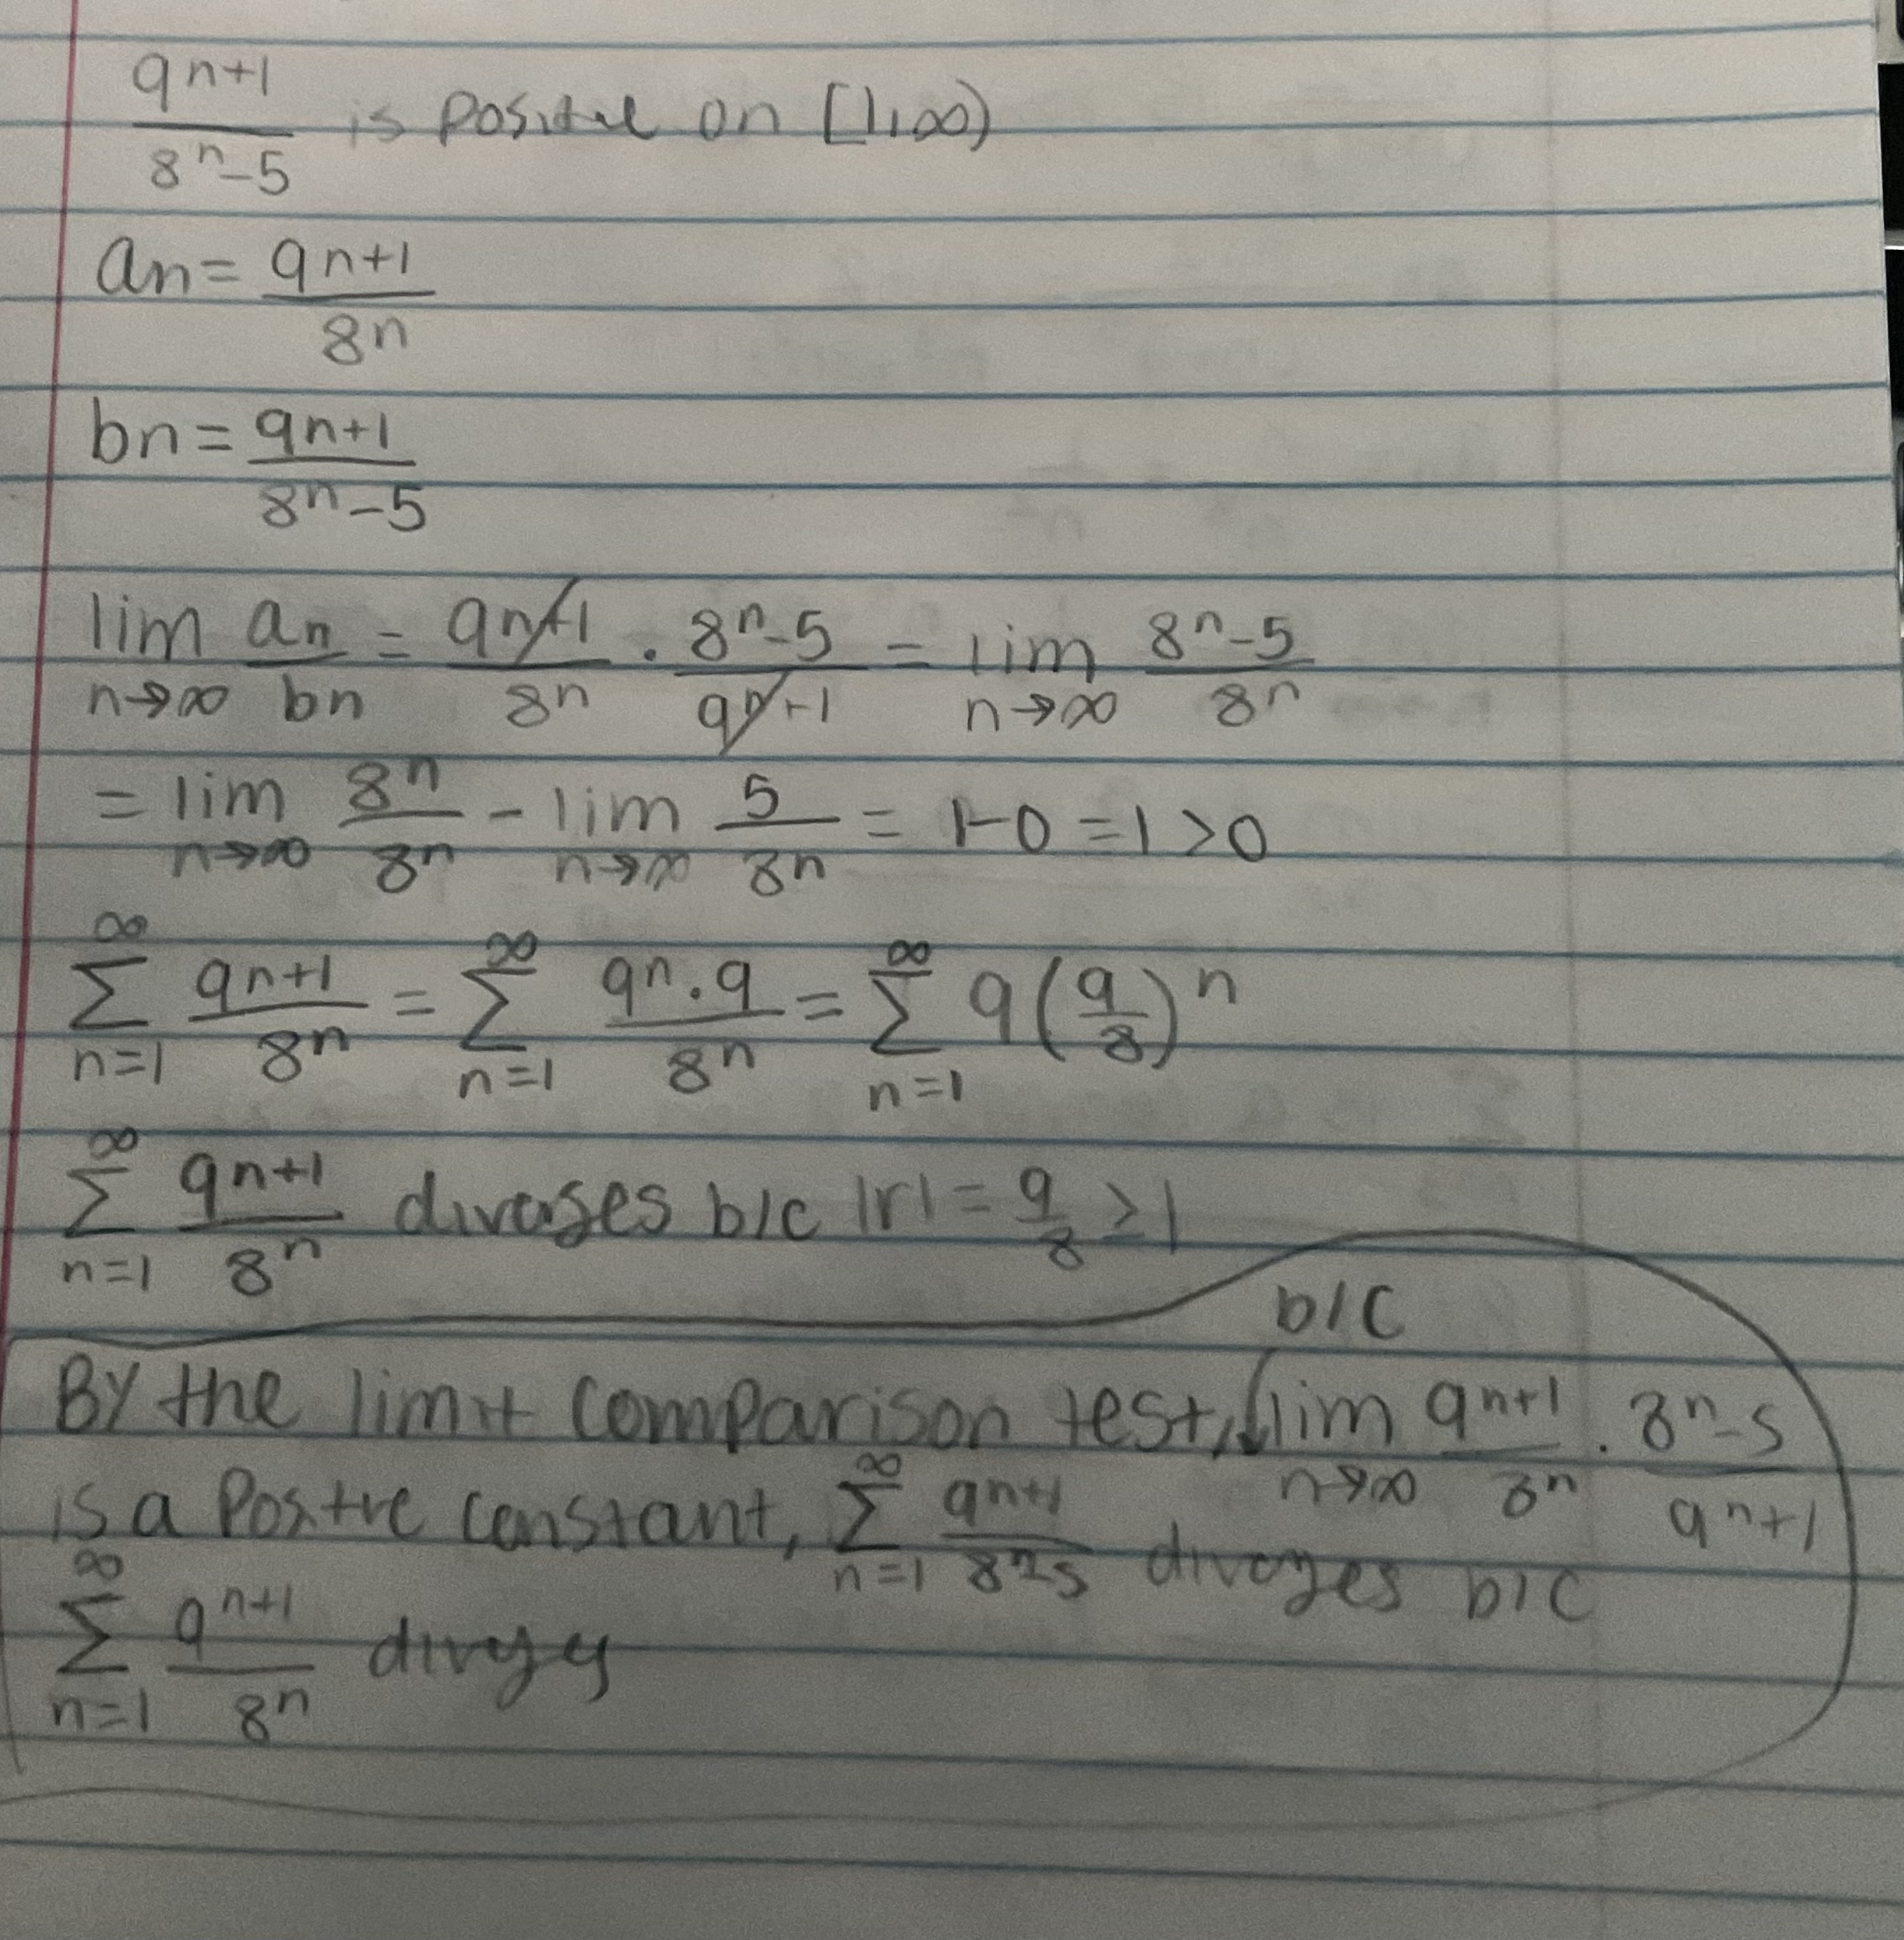 9^{n+1}/(8^n-5) is positive on [1,∞)
an = 9^{n+1}/8^n
bn = 9^{n+1}/(8^n-5)
lim_{n→∞} an/bn = 9^{n+1}/8^n · (8^n-5)/9^{n+1} = lim_{n→∞} (8^n-5)/8^n
= lim_{n→∞} 8^n/8^n - lim_{n→∞} 5/8^n = 1-0 = 1 > 0
∑_{n=1}^{∞} 9^{n+1}/8^n = ∑_{n=1}^{∞} (9^n · 9)/8^n = ∑_{n=1}^{∞} 9(9/8)^n
∑_{n=1}^{∞} 9^{n+1}/8^n diverges b/c |r| = 9/8 ≥ 1
By the limit comparison test, b/c lim_{n→∞} 9^{n+1}/8^n · (8^n-5)/9^{n+1}
is a positive constant, ∑_{n=1}^{∞} 9^{n+1}/(8^n-5) diverges b/c
∑_{n=1}^{∞} 9^{n+1}/8^n diverges